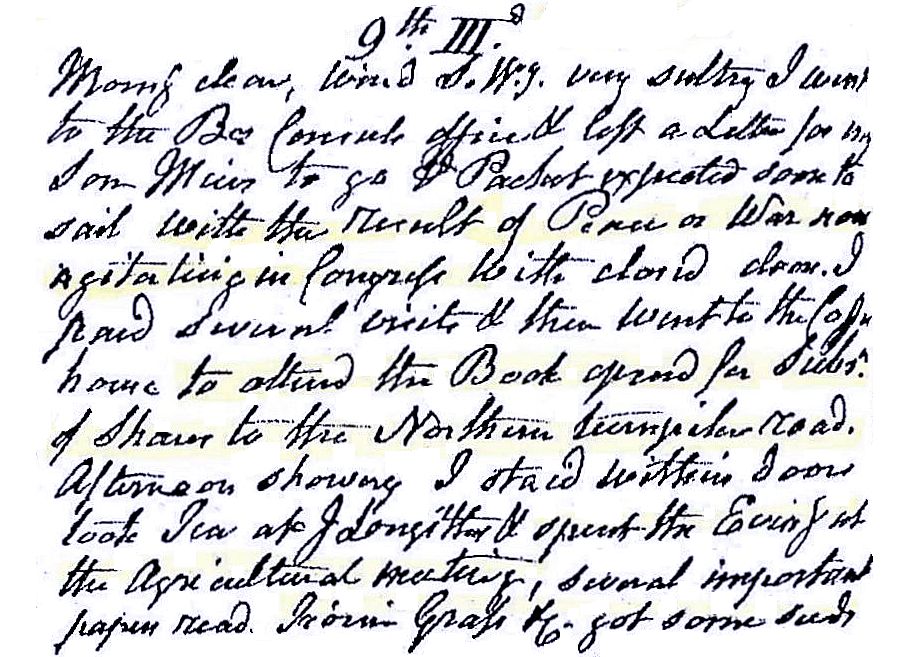 9th III.d
Morng clear, wind S. Wy. very sultry I went
to the Bs Consuls office & left a Letter for my
Son Miers to go Packet expected soon to
sail with the result of Peace or War now
agitating in Congress With closed doors. I
paid several visits & then went to the Coffe
house to attend the Book opend for Subsn.
of Shares to the Northern turnpike road.
Afternoon showery I staid within doors
took Tea at J & spent the Eveing at
the Agricultural meeting, several important
papers read. Grass &c. got some seeds